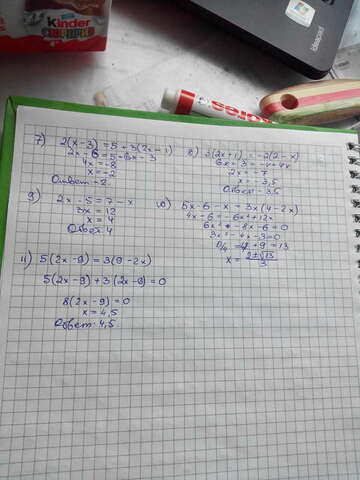 Kinder
ideapad
7) 2(x-3) = 5+3(2x-1)
2x-6=5+6x-3
4x=-8
x=-2
Ответ -2
8) 3(2x+1) = -2(2-x)
6x+3=-4+2x
2x=-7
x=-3,5
Ответ -3,5
9) 2x-5=7-x
3x=12
x=4
Ответ 4
10) 5x-6-x=3x(4-2x)
4x-6=-6x²+12x
6x²-8x-6=0
3x²-4x-3=0
D/4=4+9=13
x=(2±√13)/3
11) 5(2x-9)=3(9-2x)
5(2x-9)+3(2x-9)=0
8(2x-9)=0
x=4,5
Ответ 4,5